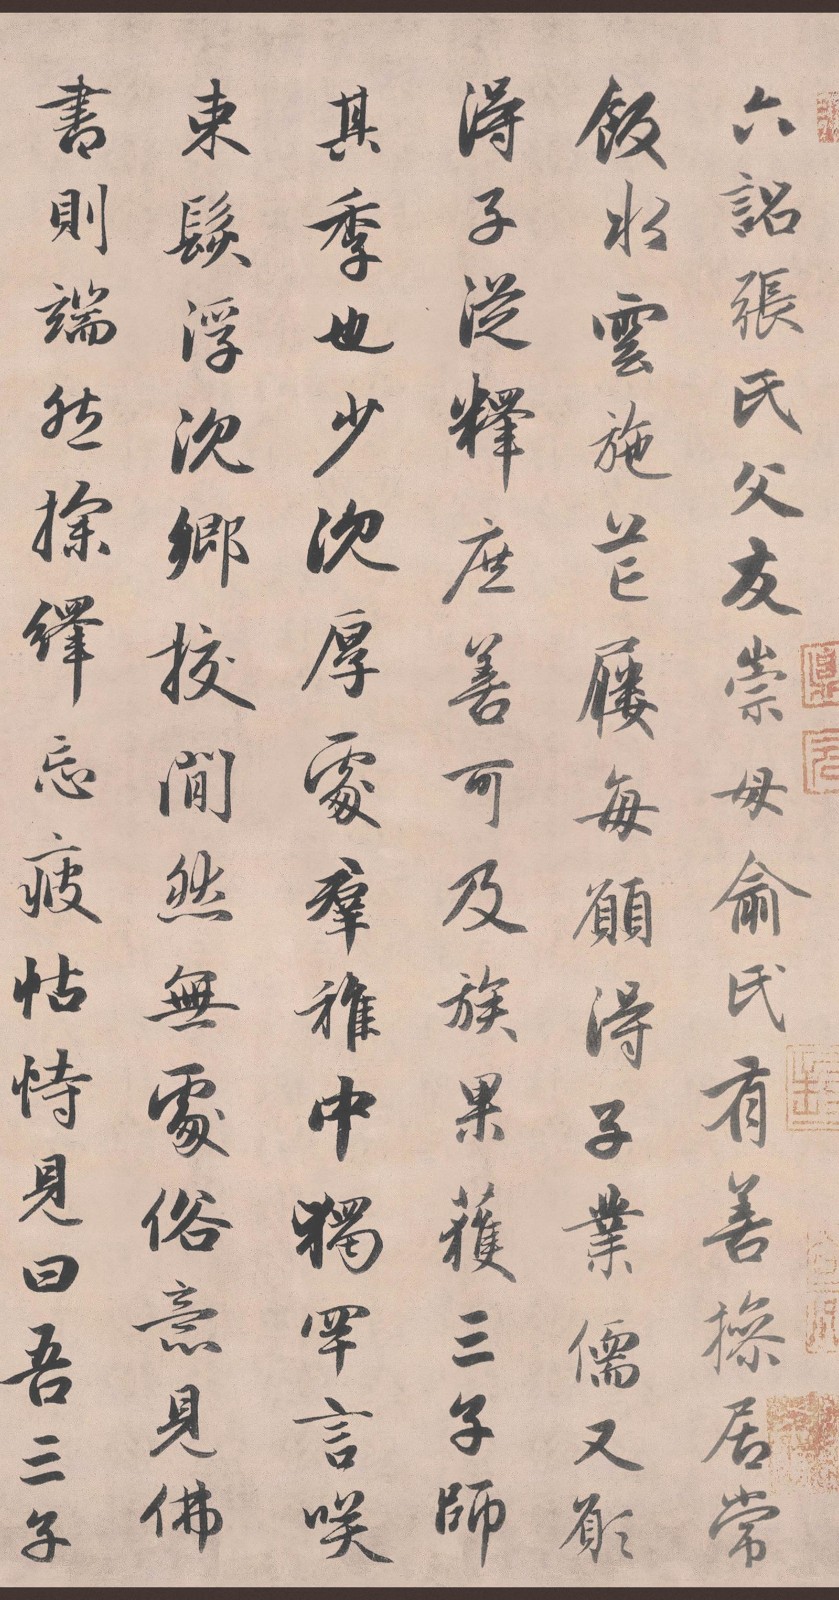 六詔張氏父友崇母俞氏有善操居常
飯水雲施芒屨每願得子業儒又願
得子從釋庶善可及族果獲三子師
其季也少沈厚處羣稚中獨罕言咲
束髮浮沈鄉校間然無處俗意見佛
書則端然探繹忘疲怙恃見曰吾三子